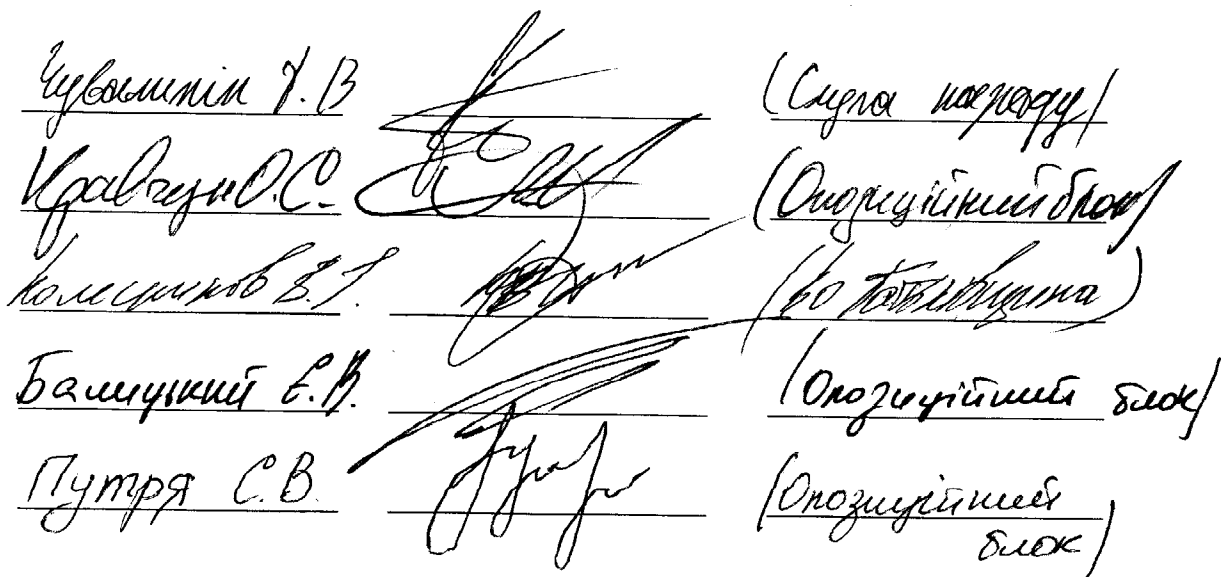 Чувалихін Т.В (Слуга народу)
Кравчун О.С. (Опозиційний блок)
Колесников В.І. (ВО Батьківщина)
Балицький Є.В. (Опозиційний блок)
Путря С.В. (Опозиційний
блок)